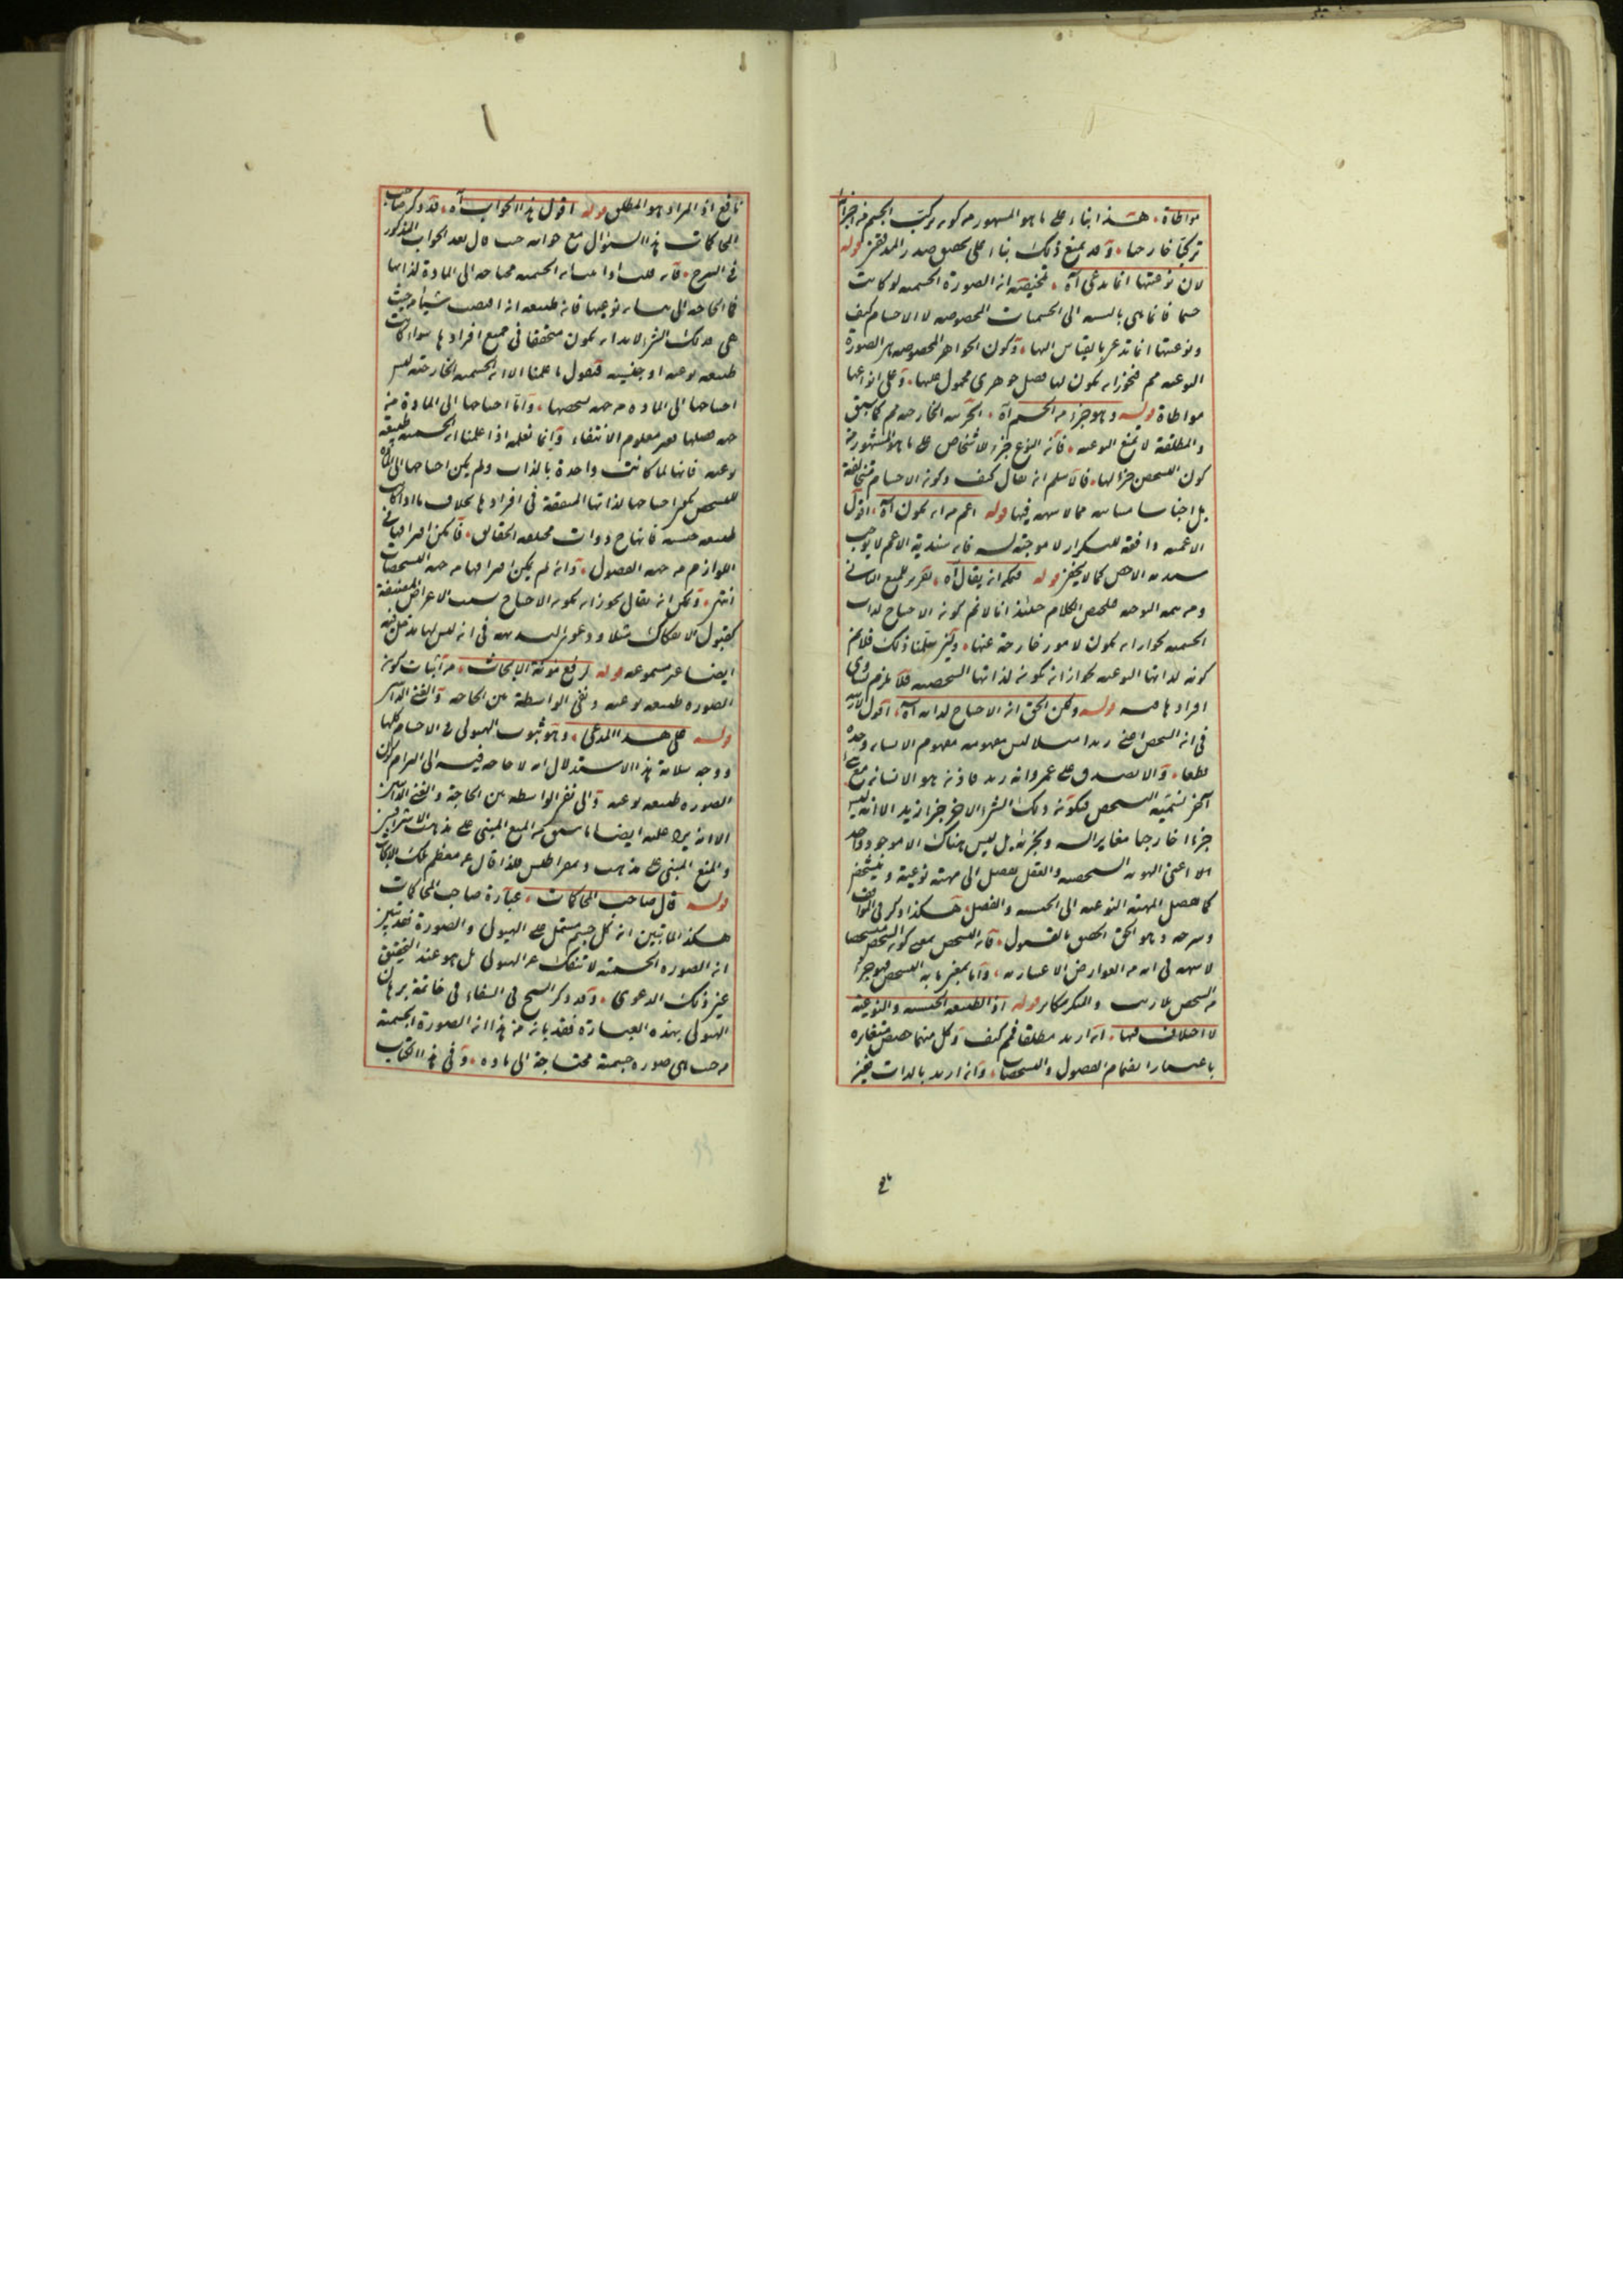 مواطاة هذا بناء على ما هو المشهور من كونه تركب الجسم من اجزائه
تركبا خارجيا وقد يمنع ذلك بناء على تحقيق صدر المدققين قوله
لان نوعيتها انما تدعى آه تلخيصه ان الصورة الجسمية لو كانت
جنسا فانما هى بالنسبة الى الجسميات المخصوصة لا الاجسام كيف
ونوعيتها انما تدعى بالقياس اليها وكون الجواهر المخصوصة هى الصورة
النوعية مم فيجوز ان يكون لها فصل جوهرى محمول عليها وعلى انواعها
مواطاة قوله وهو جزء من الجسم آه الجزئية الخارجية مم كما سبق
والمطلقة لا تمنع النوعية فان النوع جزء للاشخاص على ما هو المشهور من
كون التشخص جزءا لها فلا نسلم ان يقال كيف وكون الاجسام متخالفة
بل اجناسا متباينة مما لا شبهة فيها قوله اعم من ان يكون آه اقول
الاعمية دافعة للتكرار لا موجبة له فان سندية الاعم لا يوجب
سندية الاخص كما لا يخفى قوله فيمكن ان يقال آه تقرير للمنع الثانى
الجسمية لجواز ان يكون لامور خارجة عنها ولئن سلمنا ذلك فلا نم
كونه لذاتها النوعية لجواز ان يكون لذاتها الشخصية فلا يلزم تساوى
افرادها فيه قوله ولكن الحق ان الاحتياج لذاته آه اقول لا ريب
فى ان الشخص اعنى زيدا مثلا ليس مفهومه مفهوم الانسان وحده
قطعا والا لصدق على عمرو انه زيد فاذن هو الانسان مع شئ
آخر نسميه التشخص فيكون ذلك الشئ الآخر جزء زيد الا انه ليس
جزءا خارجيا مغايرا له وبجزئه بل ليس هناك الا موجود واحد
الا اعنى الهوية الشخصية والعقل يفصل الى مهية نوعية وتشخص
كما يفصل المهية النوعية الى الجنس والفصل هكذا ذكر فى المواقف
وشرحه وهو الحق الحقيق بالقبول فان التشخص بمعنى كون الشخص متشخصا
لا شبهة فى انه من العوارض الاعتبارية واما بمعنى ما به التشخص فهو جزء
من الشخص بلا ريب والمنكر مكابر قوله اذ الطبيعة الجنسية والنوعية
لا اختلاف فيها ان اريد مطلقا فمم كيف وكل منهما حصص متغايرة
باعتبار انضمام الفصول والتشخصات وان اريد بالذات فغير
نافع اذ المراد هو المطلق قوله اقول هذا الجواب آه قد ذكر صاحب
المحاكمات هذا السؤال مع جوابه حيث قال بعد الجواب المذكور
فى الشرح فان قلت اذا ثبت ان الجسمية محتاجة الى المادة لذاتها
فما الحاجة الى بيان نوعيتها فان طبيعة اذا اقتضت شيئا من حيث
هى فذلك الشئ لا بد ان يكون متحققا فى جميع افرادها سواء كانت
طبيعة نوعية او جنسية فنقول ما علمنا الا ان الجسمية الخارجية ليس
احتياجها الى المادة من جهة تشخصها واما احتياجها الى المادة من
جهة فصلها فغير معلوم الانتفاء وانما نعلم اذا علمنا ان الجسمية طبيعة
نوعية فانها لما كانت واحدة بالذات ولم يكن احتياجها الى المادة
للتشخص يكون احتياجها لذاتها المتفقة فى افرادها بخلاف ما اذا كانت
طبيعة جنسية فانها ح ذوات مختلفة الحقائق فامكن افتراقها فى
اللوازم من جهة الفصول وان لم يكن افتراقها من جهة التشخصات
انتهى ويمكن ان يقال يجوز ان يكون الاحتياج بسبب الاعراض المصنفة
كقبول الانفكاك مثلا ودعوى البديهة فى ان ليس لها مدخل فيه
ايضا غير مسموعة قوله لرفع مؤنة الابحاث من اثبات كون
الصورة طبيعة نوعية ونفى الواسطة بين الحاجة والغنى الذاتى
قوله على هذا المدعى وهو ثبوت الهيولى فى الاجسام كلها
ووجه سلامة هذا الاستدلال انه لا حاجة فيه الى التزام كون
الصورة طبيعة نوعية والى نفى الواسطة بين الحاجة والغنى الذاتيين
الا انه يرد عليه ايضا ما سبق من المنع المبنى على مذهب الاشراقيين
والمنع المبنى على مذهب ذيمقراطيس فلذا قال عن معظم تلك الابحاث
قوله قال صاحب المحاكمات عبارة صاحب المحاكمات
هكذا لما تبين ان كل جسم مشتمل على الهيولى والصورة فقد تبين
ان الصورة الجسمية لا تنفك عن الهيولى بل هو عند التحقيق
عين ذلك الدعوى وقد ذكر الشيخ فى الشفاء فى خاتمة برهان
الهيولى بهذه العبارة فقد بان من هذا ان الصورة الجسمية
من حيث هى صورة جسمية محتاجة الى مادة وفى هذا الكتاب